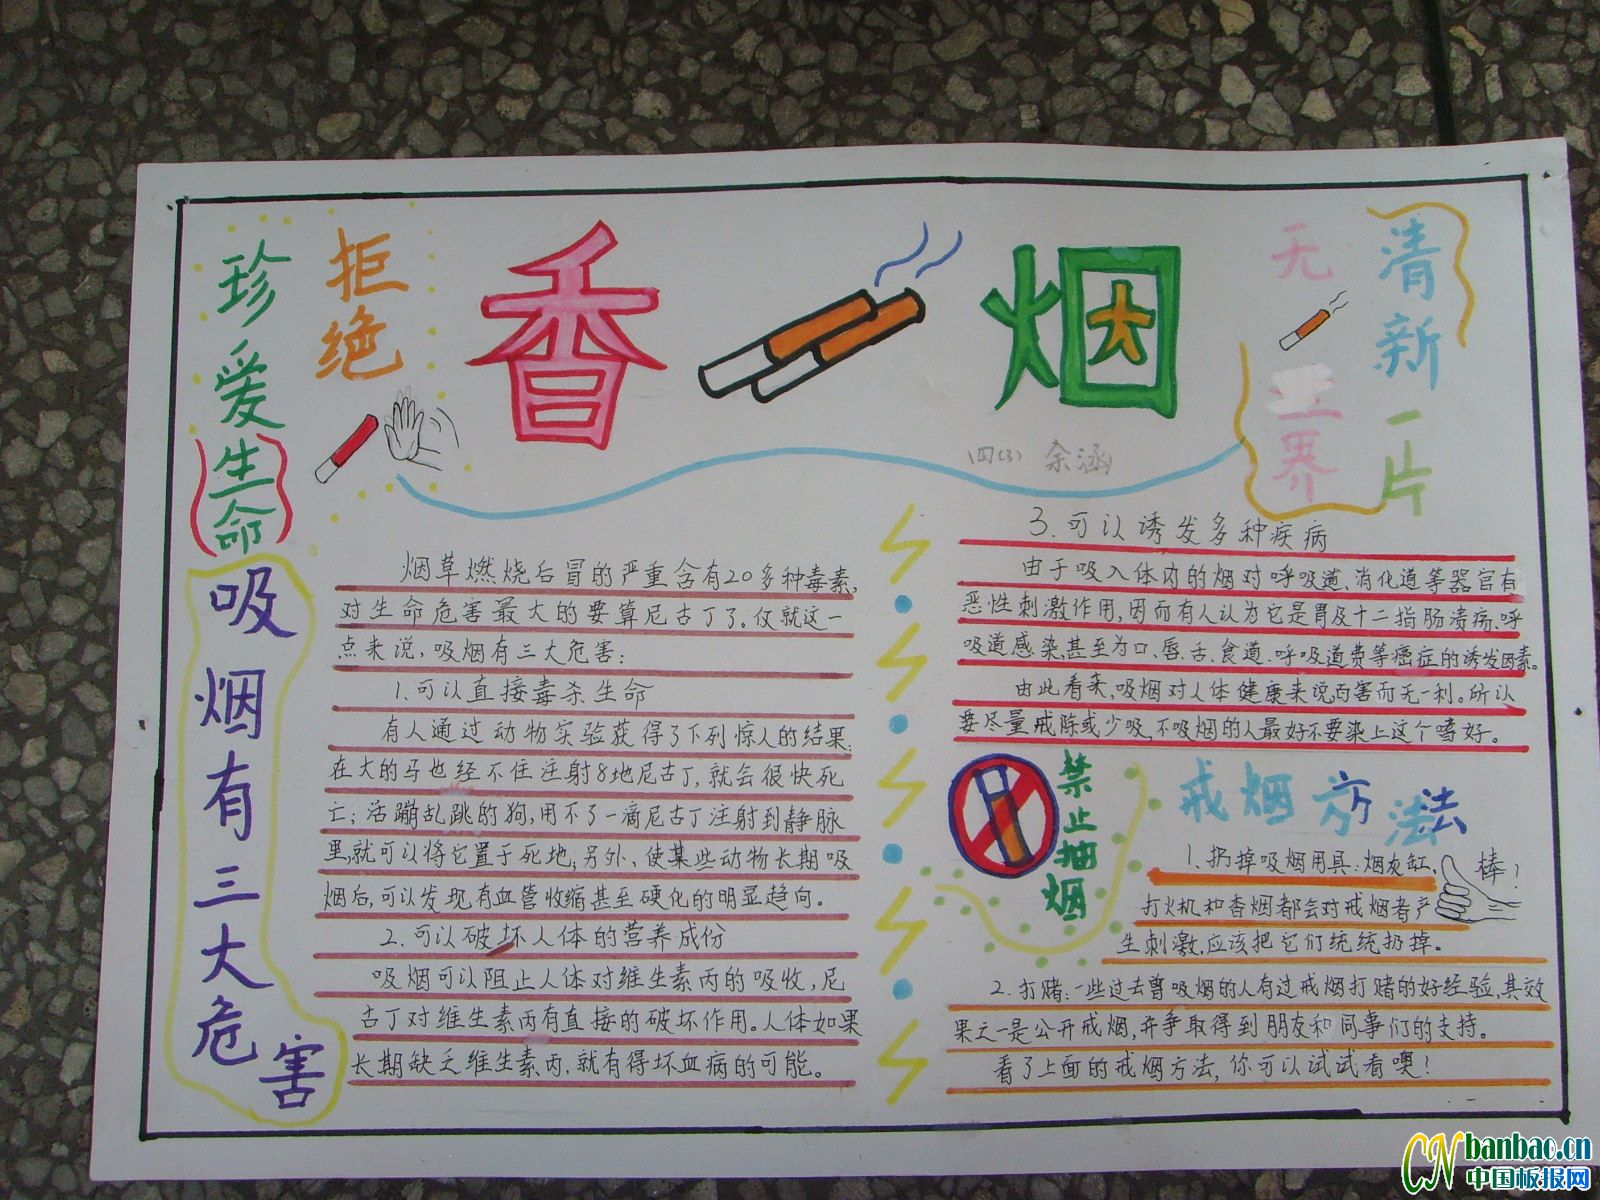 珍爱生命
拒绝
香烟
无
烟
世界
清新一片
四(3) 余涵
吸烟有三大危害
烟草燃烧后冒的严重含有20多种毒素,
对生命危害最大的要算尼古丁了。仅就这一
点来说,吸烟有三大危害:
1.可以直接毒杀生命
有人通过动物实验获得了下列惊人的结果:
在大的马也经不住注射8地尼古丁,就会很快死
亡;活蹦乱跳的狗,用不了一滴尼古丁注射到静脉
里,就可以将它置于死地,另外、使某些动物长期吸
烟后,可以发现有血管收缩甚至硬化的明显趋向。
2.可以破坏人体的营养成份
吸烟可以阻止人体对维生素丙的吸收,尼
古丁对维生素丙有直接的破坏作用。人体如果
长期缺乏维生素丙,就有得坏血病的可能。
3.可以诱发多种疾病
由于吸入体内的烟对呼吸道、消化道等器官有
恶性刺激作用,因而有人认为它是胃及十二指肠溃疡、呼
吸道感染,甚至为口、唇、舌、食道、呼吸道费等癌症的诱发因素。
由此看来、吸烟对人体健康来说,百害而无一利。所以
要尽量戒除或少吸,不吸烟的人最好不要染上这个嗜好。
禁止抽烟
戒烟方法
1.扔掉吸烟用具:烟灰缸,
棒!
打火机和香烟都会对戒烟者产
生刺激,应该把它们统统扔掉。
2.打赌:一些过去曾吸烟的人有过戒烟打赌的好经验,其效
果之一是公开戒烟,并争取得到朋友和同事们的支持。
看了上面的戒烟方法,你可以试试看噢!
CN banbao.cn
中国板报网